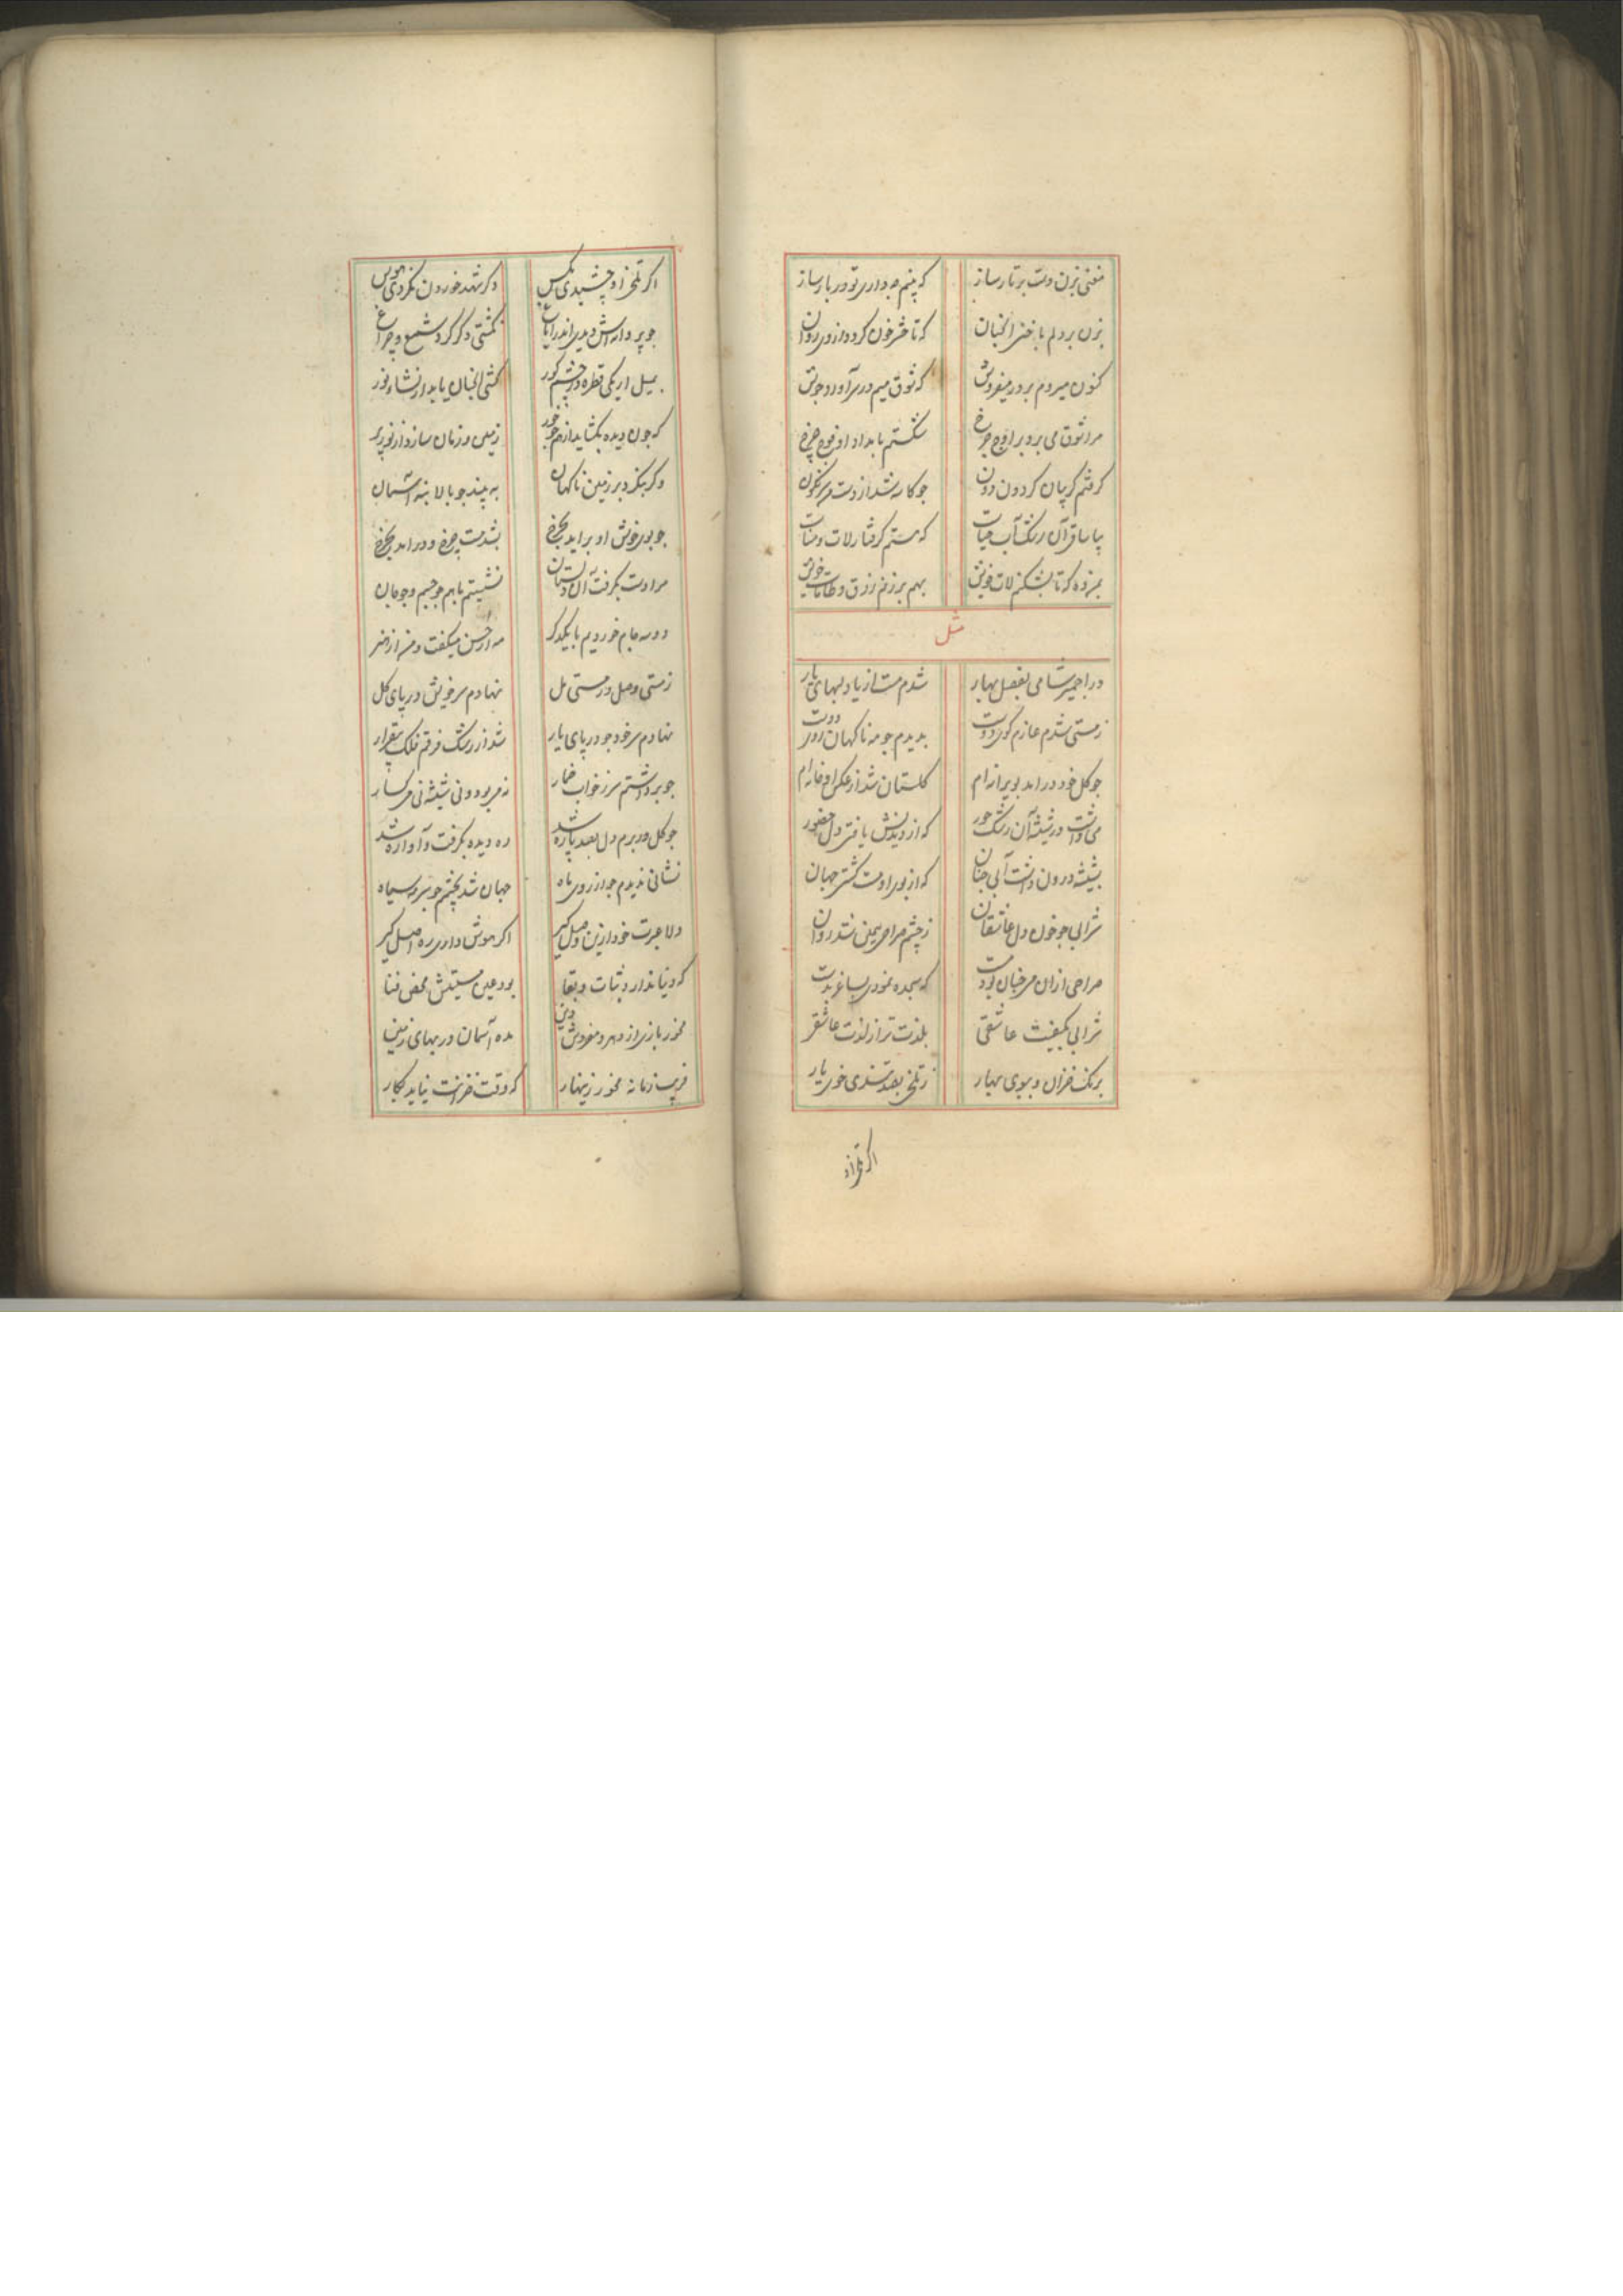 مغنی بزن دست بر تار ساز که بینم چه داری تو در بار ساز
بزن بر دلم ناخنی آنچنان که تا حشر خون گردد از وی روان
کنون میروم بر در میفروش که شوق میم در سر آورد جوش
مرا شوق می برد بر اوج چرخ شکستم
گرفتم گریبان گردون دون جو کاسه شد از دست من سرنگون
بیا ساقی آن رشک آب حیات که هستم گرفتار لات و منات
بمن ده که تا بشکنم لات خویش بهم بر زنم زرق و طامات خویش
مثل
در اجمیر شامی بفصل بهار شدم مست از یاد لبهای یار
ز مستی شدم عازم کوی دوست بدیدم جو مه ناکهان روی دوست
جو کل خود در امد بویرانه ام کلستان شد از عکس او خانه ام
می داشت در شیشه آن رشک حور که از دیدنش یافتی دل حضور
بشیشه درون داشت آبی جنان که از بوی او مست گشتی جهان
شرابی جو خون دل عاشقان ز چشم صراحی بمن شد روان
صراحی ازان می جنان بود مست که سجده نمودی بساغر بدست
شرابی بکیفیت عاشقی بلذت تر از لذت عاشقی
برنک خزان و ببوی بهار ز تلخی بصد تندی خوی یار
اکر تلخ از او
اکر تلخ از او چشیدی مکس دکر شهد خوردن نکردی هوس
جو پروانه اش دیدی اندر ایاغ نکشتی دکر کرد شمع و چراغ
بمیل ار یکی قطره در چشم کور کشی آنچنان یابد از نشاء نور
که جون دیده بکشاید از زمین و زمان سازد از نور پر
وکر بنکرد بر زمین ناکهان به بیند جو بالا ته آسمان
جو بوی خوش او بر اید بچرخ شود مست چرخ و در اید بچرخ
مرا دست بکرفت آن دلستان نشستیم باهم جو جسم و جو جان
دو سه جام خوردیم با یکدکر مه از حسن میکفت و من از هنر
ز مستی وصل و ز مستی مل نهادم سر خویش در پای کل
نهادم سر خود جو در پای یار شد از رشک فرقم فلک بیقرار
جو برداشتم سر ز خواب خمار نه می بود و نی شیشه نی میکسار
جو کل در برم دل بصد پاره شد ره دیده بکرفت و آواره شد
نشانی ندیدم جو از روی ماه جهان شد بچشم جو سرمه سیاه
دلا عبرت خود ازین وصل کیر اکر هوش داری ره اصل کیر
که دنیا ندارد ثبات و بقا بود عین هستیش محض فنا
مخور بازی از دهر و مفروش دین مده آسمان در بهای زمین
فریب زمانه مخور زینهار که وقت ضرورت نیاید بکار